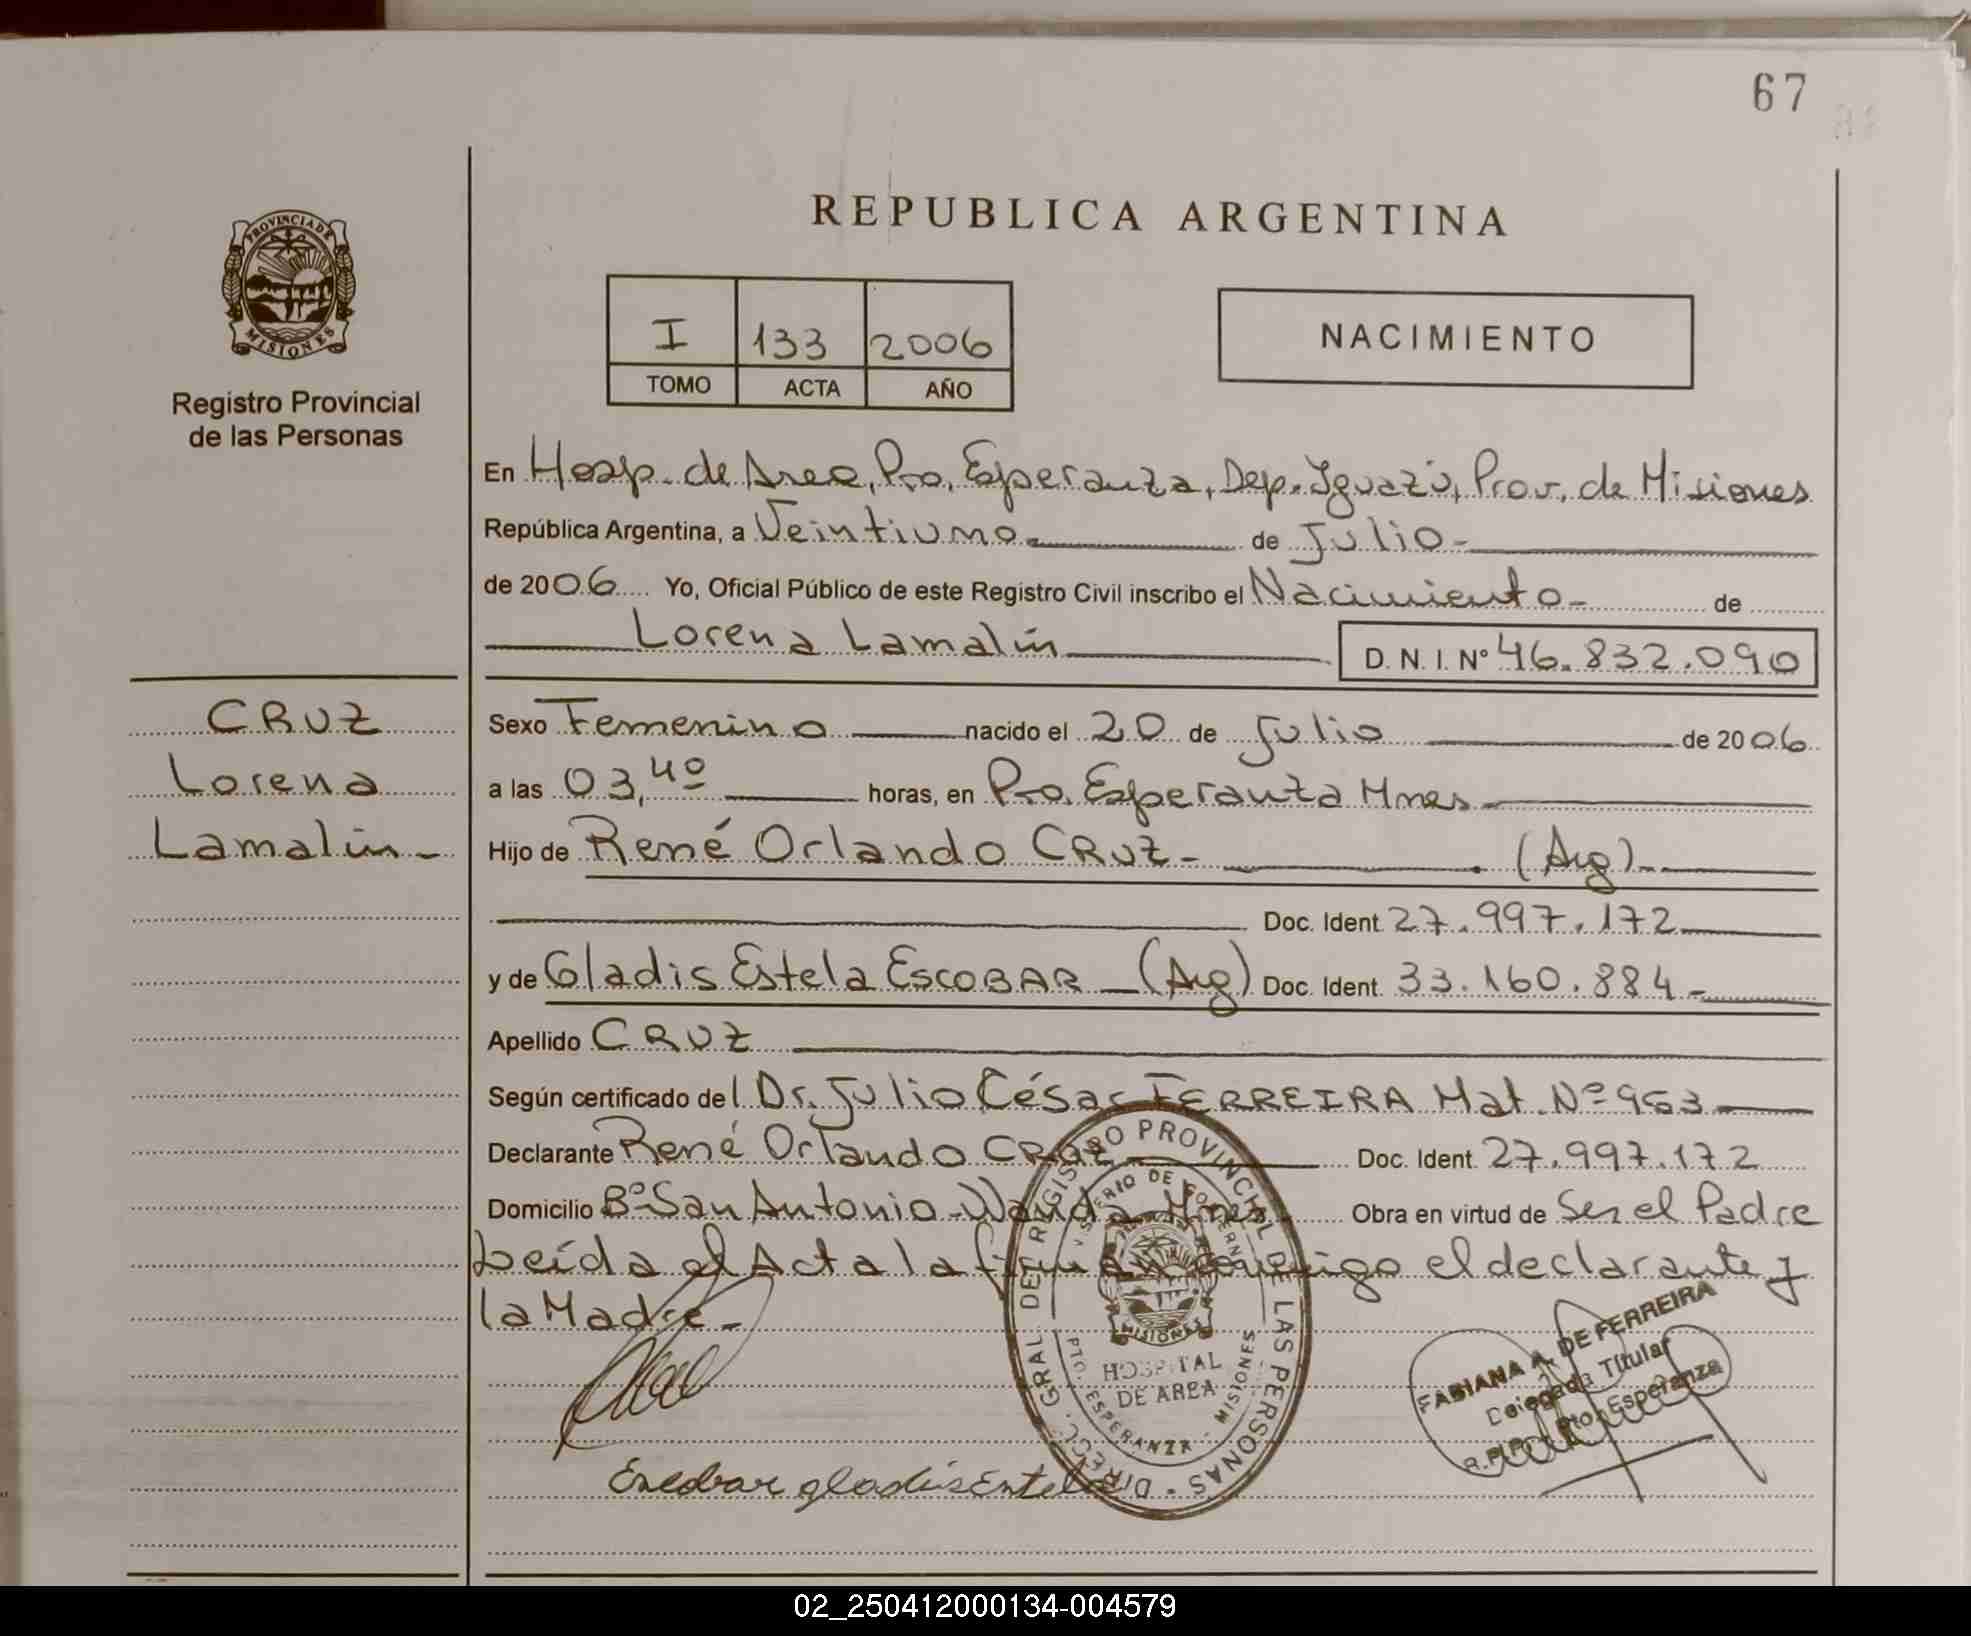 67
REPUBLICA ARGENTINA
PROVINCIA DE
MISIONES
Registro Provincial
de las Personas
I 133 2006
TOMO ACTA AÑO
NACIMIENTO
En Hosp. de Area, Pto. Esperanza, Dep. Iguazú, Prov. de Misiones
República Argentina, a Veintiuno de Julio
de 2006 Yo, Oficial Público de este Registro Civil inscribo el Nacimiento de
Lorena Lamalin D. N. I. Nº 46.832.090
CRUZ
Lorena
Lamalin
Sexo Femenino nacido el 20 de Julio de 2006
a las 03,40 horas, en Pto. Esperanza Mnes
Hijo de René Orlando CRUZ (Arg)
Doc. Ident. 27.997.172
y de Gladis Estela ESCOBAR (Arg) Doc. Ident. 33.160.884
Apellido CRUZ
Según certificado del Dr. Julio César FERREIRA Mat. Nº 953
Declarante René Orlando CRUZ Doc. Ident. 27.997.172
Domicilio Bº San Antonio - Wanda Mnes. Obra en virtud de Ser el Padre
Leída el Acta la firman conmigo el declarante y
la Madre
DIRECC. GRAL. DEL REGISTRO PROVINCIAL DE LAS PERSONAS
MINISTERIO DE GOBIERNO
MISIONES
HOSPITAL
DE AREA
PTO. ESPERANZA - MISIONES
FABIANA A. DE FERREIRA
Delegada Titular
R.P.P. Pto. Esperanza
Escobar gladis Estela
02_250412000134-004579